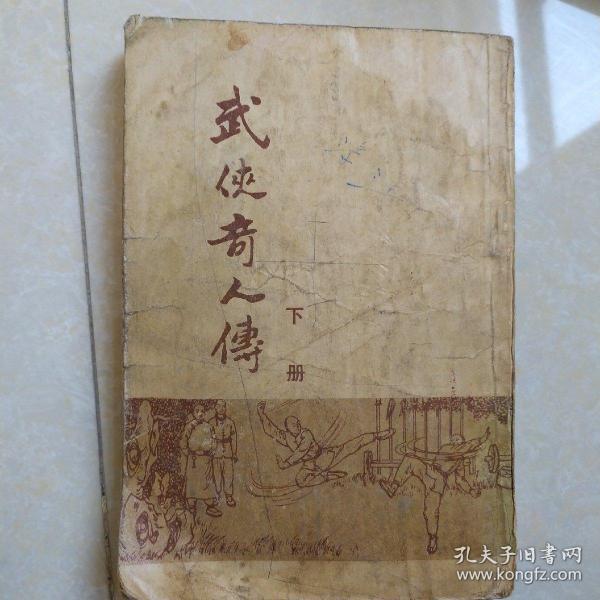 武俠奇人傳
下册
孔夫子旧書网
www.kongfz.com